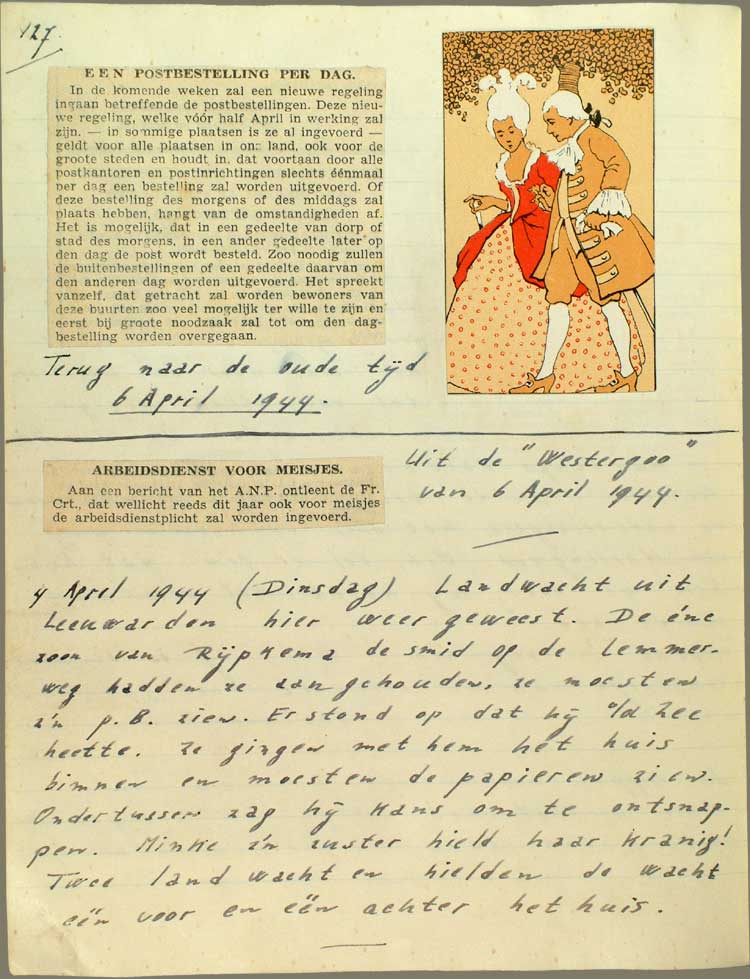 127.
EEN POSTBESTELLING PER DAG.
In de komende weken zal een nieuwe regeling
ingaan betreffende de postbestellingen. Deze nieu-
we regeling, welke vóór half April in werking zal
zijn. — in sommige plaatsen is ze al ingevoerd —
geldt voor alle plaatsen in ons land, ook voor de
groote steden en houdt in, dat voortaan door alle
postkantoren en postinrichtingen slechts éénmaal
per dag een bestelling zal worden uitgevoerd. Of
deze bestelling des morgens of des middags zal
plaats hebben, hangt van de omstandigheden af.
Het is mogelijk, dat in een gedeelte van dorp of
stad des morgens, in een ander gedeelte later op
den dag de post wordt besteld. Zoo noodig zullen
de buitenbestellingen of een gedeelte daarvan om
den anderen dag worden uitgevoerd. Het spreekt
vanzelf, dat getracht zal worden bewoners van
deze buurten zoo veel mogelijk ter wille te zijn en
eerst bij groote noodzaak zal tot om den dag-
bestelling worden overgegaan.
Terug naar de oude tijd
6 April 1944.
ARBEIDSDIENST VOOR MEISJES.
Aan een bericht van het A.N.P. ontleent de Fr.
Crt., dat wellicht reeds dit jaar ook voor meisjes
de arbeidsdienstplicht zal worden ingevoerd.
Uit de "Westergoo"
van 6 April 1944.
4 April 1944 (Dinsdag) Landwacht uit
Leeuwarden hier weer geweest. De éne
zoon van Rijpkema de smid op de Lemmer-
weg hadden ze aangehouden, ze moesten
z'n p.B. zien. Er stond op dat hij v/d Zee
heette. Ze gingen met hem het huis
binnen en moesten de papieren zien.
Ondertussen zag hij kans om te ontsnap-
pen. Minke z'n zuster hield haar kranig!
Twee landwachten hielden de wacht
één voor en één achter het huis.